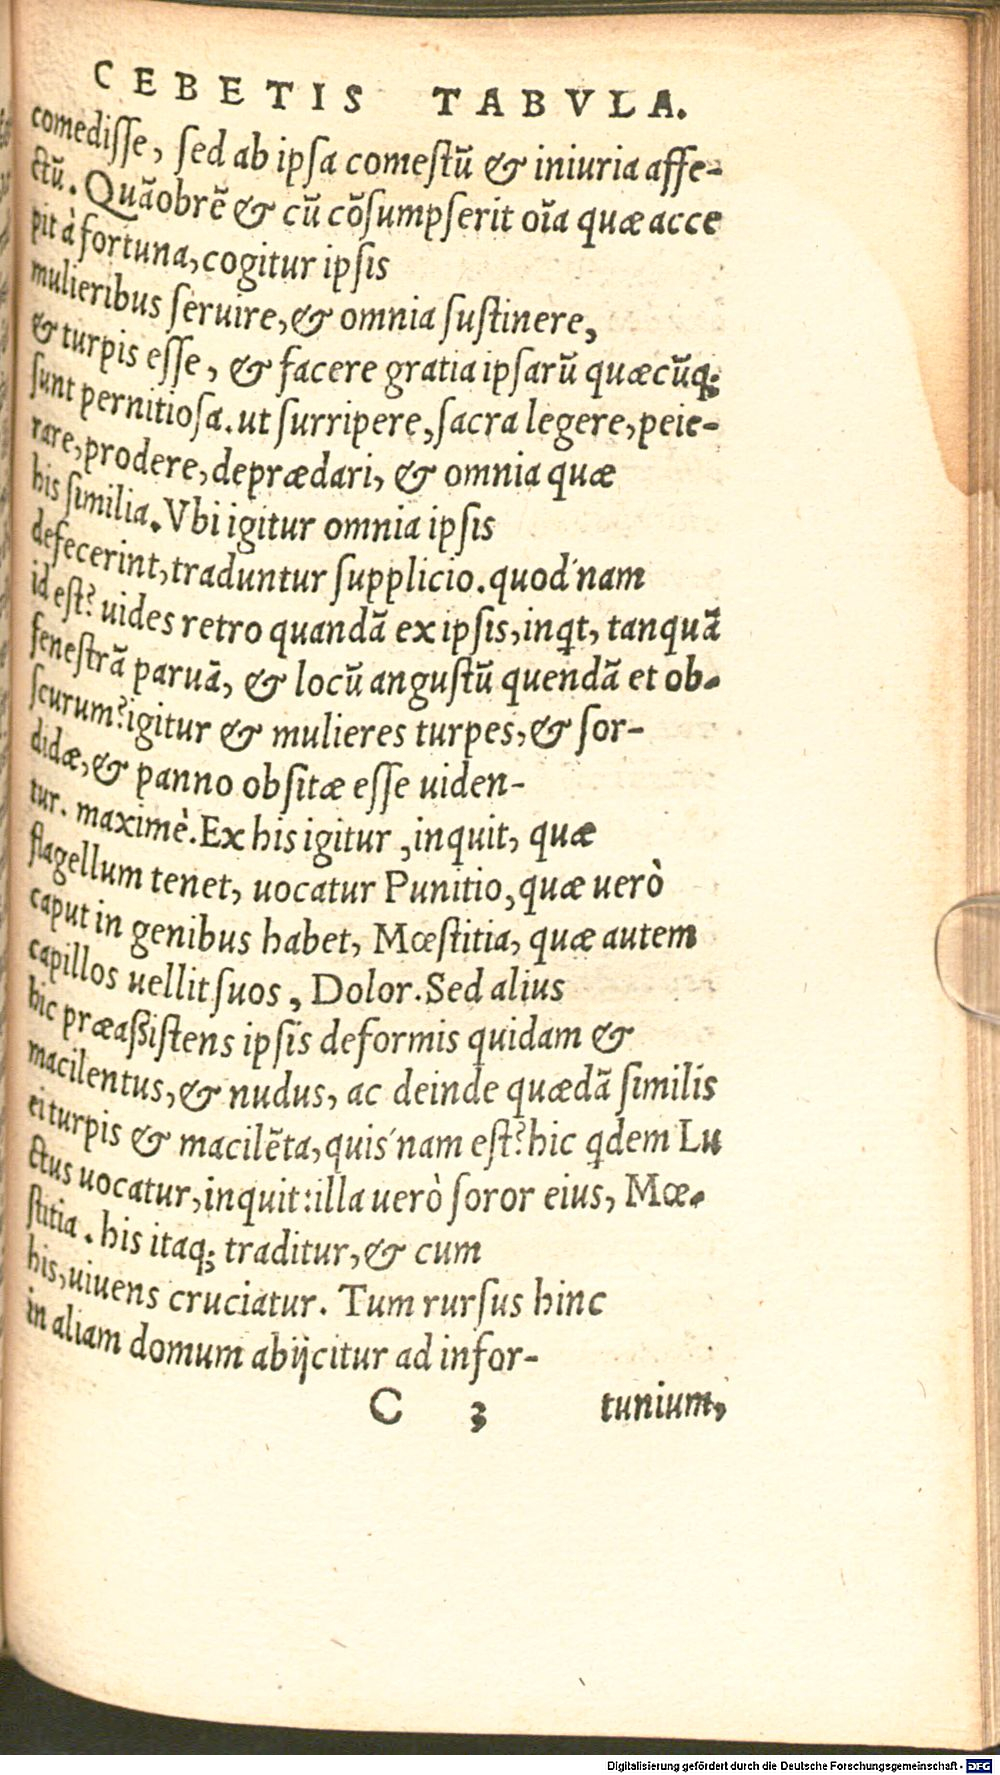 CEBETIS TABVLA.
comedisse, sed ab ipsa comestũ & iniuria affe-
ctũ. Quãobrẽ & cũ cõsumpserit oĩa quæ acce
pit à fortuna, cogitur ipsis
mulieribus seruire, & omnia sustinere,
& turpis esse, & facere gratia ipsarũ quæcũq;
sunt pernitiosa. ut surripere, sacra legere, peie-
rare, prodere, deprædari, & omnia quæ
his similia. Vbi igitur omnia ipsis
defecerint, traduntur supplicio. quod'nam
id est? uides retro quandã ex ipsis, inqt, tanquã
fenestrã paruã, & locũ angustũ quendã et ob-
scurum? igitur & mulieres turpes, & sor-
didæ, & panno obsitæ esse uiden-
tur. maximè. Ex his igitur, inquit, quæ
flagellum tenet, uocatur Punitio, quæ uerò
caput in genibus habet, Mœstitia, quæ autem
capillos uellit suos, Dolor. Sed alius
hic præassistens ipsis deformis quidam &
macilentus, & nudus, ac deinde quædã similis
ei turpis & macilẽta, quis'nam est? hic qdem Lu
ctus uocatur, inquit: illa uerò soror eius, Mœ-
stitia. his itaq; traditur, & cum
his, uiuens cruciatur. Tum rursus hinc
in aliam domum abijcitur ad infor-
C 3 tunium,
Digitalisierung gefördert durch die Deutsche Forschungsgemeinschaft - DFG